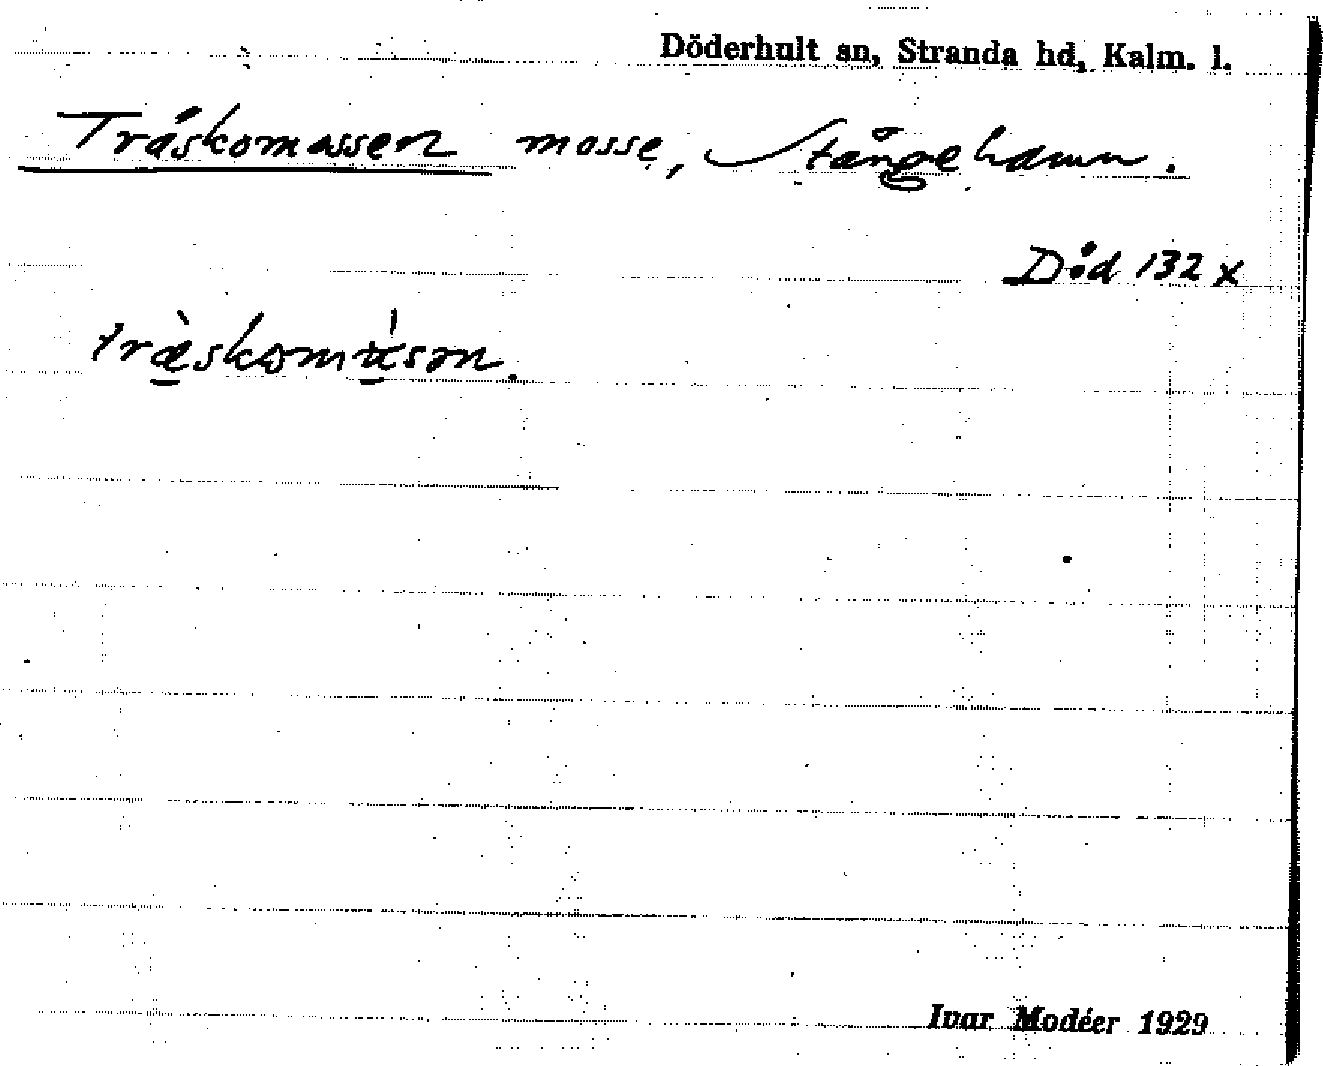 Döderhult sn, Stranda hd, Kalm. l.
Träskomossen mosse, Stångehamn.
Död 132 x
träskomɷsən.
Ivar Modéer 1929